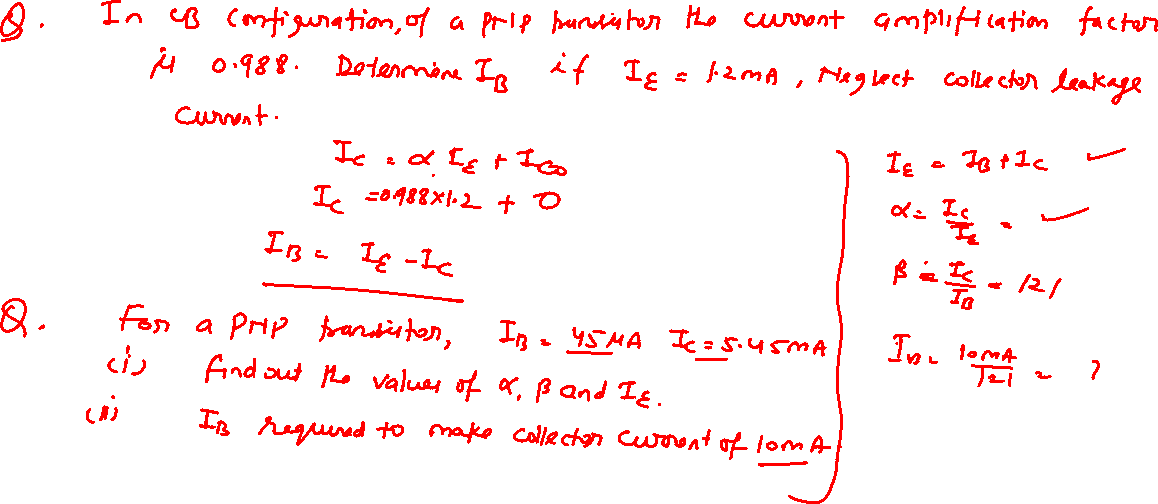 Q. In CB configuration, of a PNP transistor the current amplification factor
is 0.988. Determine I_B if I_E = 1.2mA, Neglect collector leakage
current.
I_C = α I_E + I_CO
I_C = 0.988×1.2 + 0
I_B = I_E - I_C
Q. For a PNP transistor, I_B = 45μA I_C = 5.45mA
(i) find out the values of α, β and I_E.
(ii) I_B required to make collector current of 10mA
I_E = I_B + I_C
α = I_C/I_E =
β = I_C/I_B = 121
I_B = 10mA/121 = ?